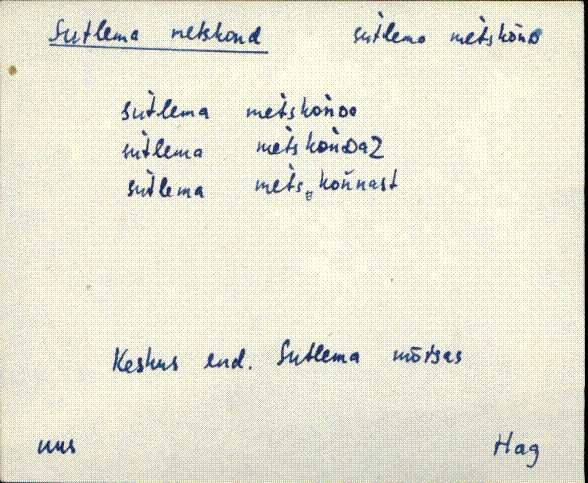 Sutlema metskond sùtlema mètskònᴅ
sùtlema mètskònᴅo
sùtlema mètskònᴅaƷ
sùtlema mèts,koǹnast
Keskus end. Sutlema mõisas
uus Hag